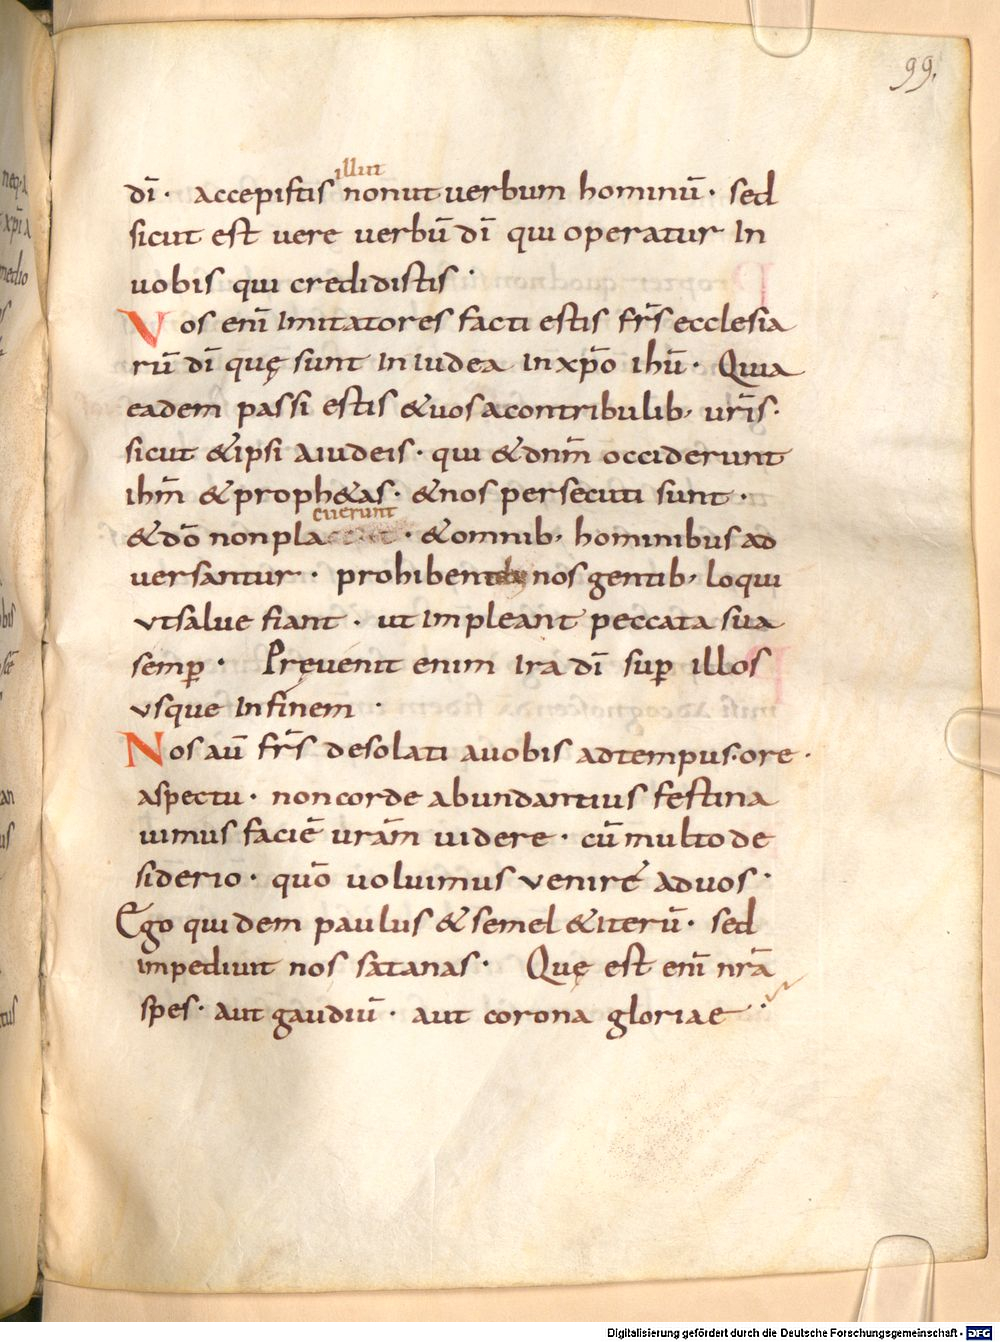 99.
illut
dī · accepistis nonut uerbum hominū · sed
sicut est uere uerbū dī qui operatur In
uobis qui credidistis ·
Vos enī Imitatores facti estis frīs ecclesia
rū dī quę sunt In Iudea In xp̄o ihū · Quia
eadem passi estis & uos acontribulib; urīs ·
sicut & ipsi Aiudeis · qui & dn̄m occiderunt
ihm̄ & proph&as · & nos persecuti sunt ·
cuerunt
& dō non pla · & omnib; hominibus ad
uersantur · prohibent nos gentib; loqui
vt saluę fiant · ut Impleant peccata sua
semꝑ · Pręuenit enim Ira dī suꝑ illos
vsque In finem ·
Nos aū frīs desolati auobis adtempus · ore ·
aspectu · non corde abundantius festina
uimus faciē urām uidere · cū multo de
siderio · quō uoluimus venire aduos ·
Ego quidem paulus & semel & Iterū · sed
Impediuit nos satanas · Quę est enī nrā
spes · aut gaudiū · aut corona gloriae ·
Digitalisierung gefördert durch die Deutsche Forschungsgemeinschaft - DFG